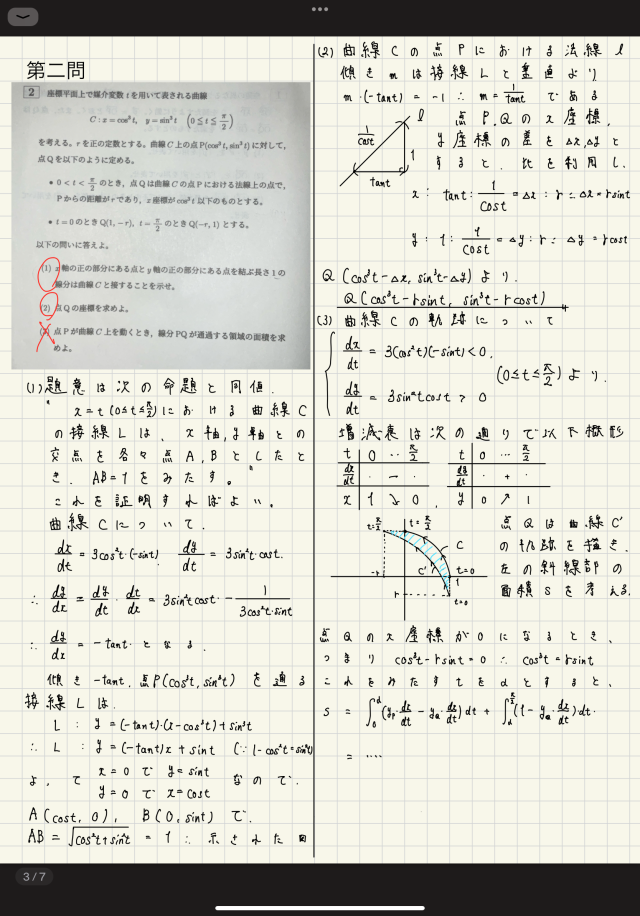 第二問
2 座標平面上で媒介変数 t を用いて表される曲線
C : x = cos³t, y = sin³t (0 ≦ t ≦ π/2)
を考える。r を正の定数とする。曲線 C 上の点 P(cos³t, sin³t) に対して,
点 Q を以下のように定める。
• 0 < t < π/2 のとき, 点 Q は曲線 C の点 P における法線上の点で,
P からの距離が r であり, x 座標が cos³t 以下のものとする。
• t = 0 のとき Q(1, −r), t = π/2 のとき Q(−r, 1) とする。
以下の問いに答えよ。
(1) x 軸の正の部分にある点と y 軸の正の部分にある点を結ぶ長さ 1 の
線分は曲線 C と接することを示せ。
(2) 点 Q の座標を求めよ。
(3) 点 P が曲線 C 上を動くとき, 線分 PQ が通過する領域の面積を求
めよ。
(1) 題意は次の命題と同値.
" x=t (0≦t≦π/2) における 曲線 C
の接線 L は, x 軸, y 軸との
交点を各々点 A, B としたと
き, AB=1 をみたす. "
これを証明すればよい.
曲線 C について.
dx/dt = 3cos²t·(-sint) dy/dt = 3sin²t·cost.
∴ dy/dx = dy/dt · dt/dx = 3sin²t cost · - 1/(3cos²t·sint)
∴ dy/dx = -tant. となる.
傾き -tant, 点P(cos³t, sin³t) を通る
接線 L は.
L : y = (-tant)·(x-cos³t)+sin³t
∴ L : y = (-tant)x + sint (∵ 1-cos²t=sin²t)
よって x=0 で y=sint
y=0 で x=cost なので.
A(cost, 0), B(0, sint) で.
AB = √(cos²t+sin²t) = 1 ∴ 示された 回
(2) 曲線 C の点 P における 法線 l
傾き m は接線 L と垂直より
m·(-tant) = -1 ∴ m = 1/tant である
l
1/cost
1
tant
点 P, Q の x 座標,
y 座標の差を Δx, Δy と
すると, 比を利用し.
x : tant : 1/cost = Δx : r ∴ Δx = rsint
y : 1 : 1/cost = Δy : r ∴ Δy = rcost
Q (cos³t-Δx, sin³t-Δy) より.
Q(cos³t-rsint, sin³t-rcost)
(3) 曲線 C の軌跡について
dx/dt = 3(cos²t)(-sint) < 0,
dy/dt = 3sin²t cost > 0
(0≦t≦π/2) より.
増減表は次の通りで以下概形
t 0 ‥ π/2 t 0 … π/2
dx/dt · - · dy/dt · + ·
x 1 ↘ 0 , y 0 ↗ 1
t=π/2
t=π/2
C
C'
t=0
-r
1
r
t=0
点 Q は曲線 C'
の軌跡を描き,
左の斜線部の
面積 S を考える.
点 Q の x 座標が 0 になるとき,
つまり cos³t-rsint=0 ∴ cos³t=rsint
これをみたす t を α とすると,
S = ∫₀^α (yₚ·dx/dt - y_Q·dx/dt) dt + ∫_α^{π/2} (1-y_Q·dx/dt) dt.
= ‥‥
3 / 7